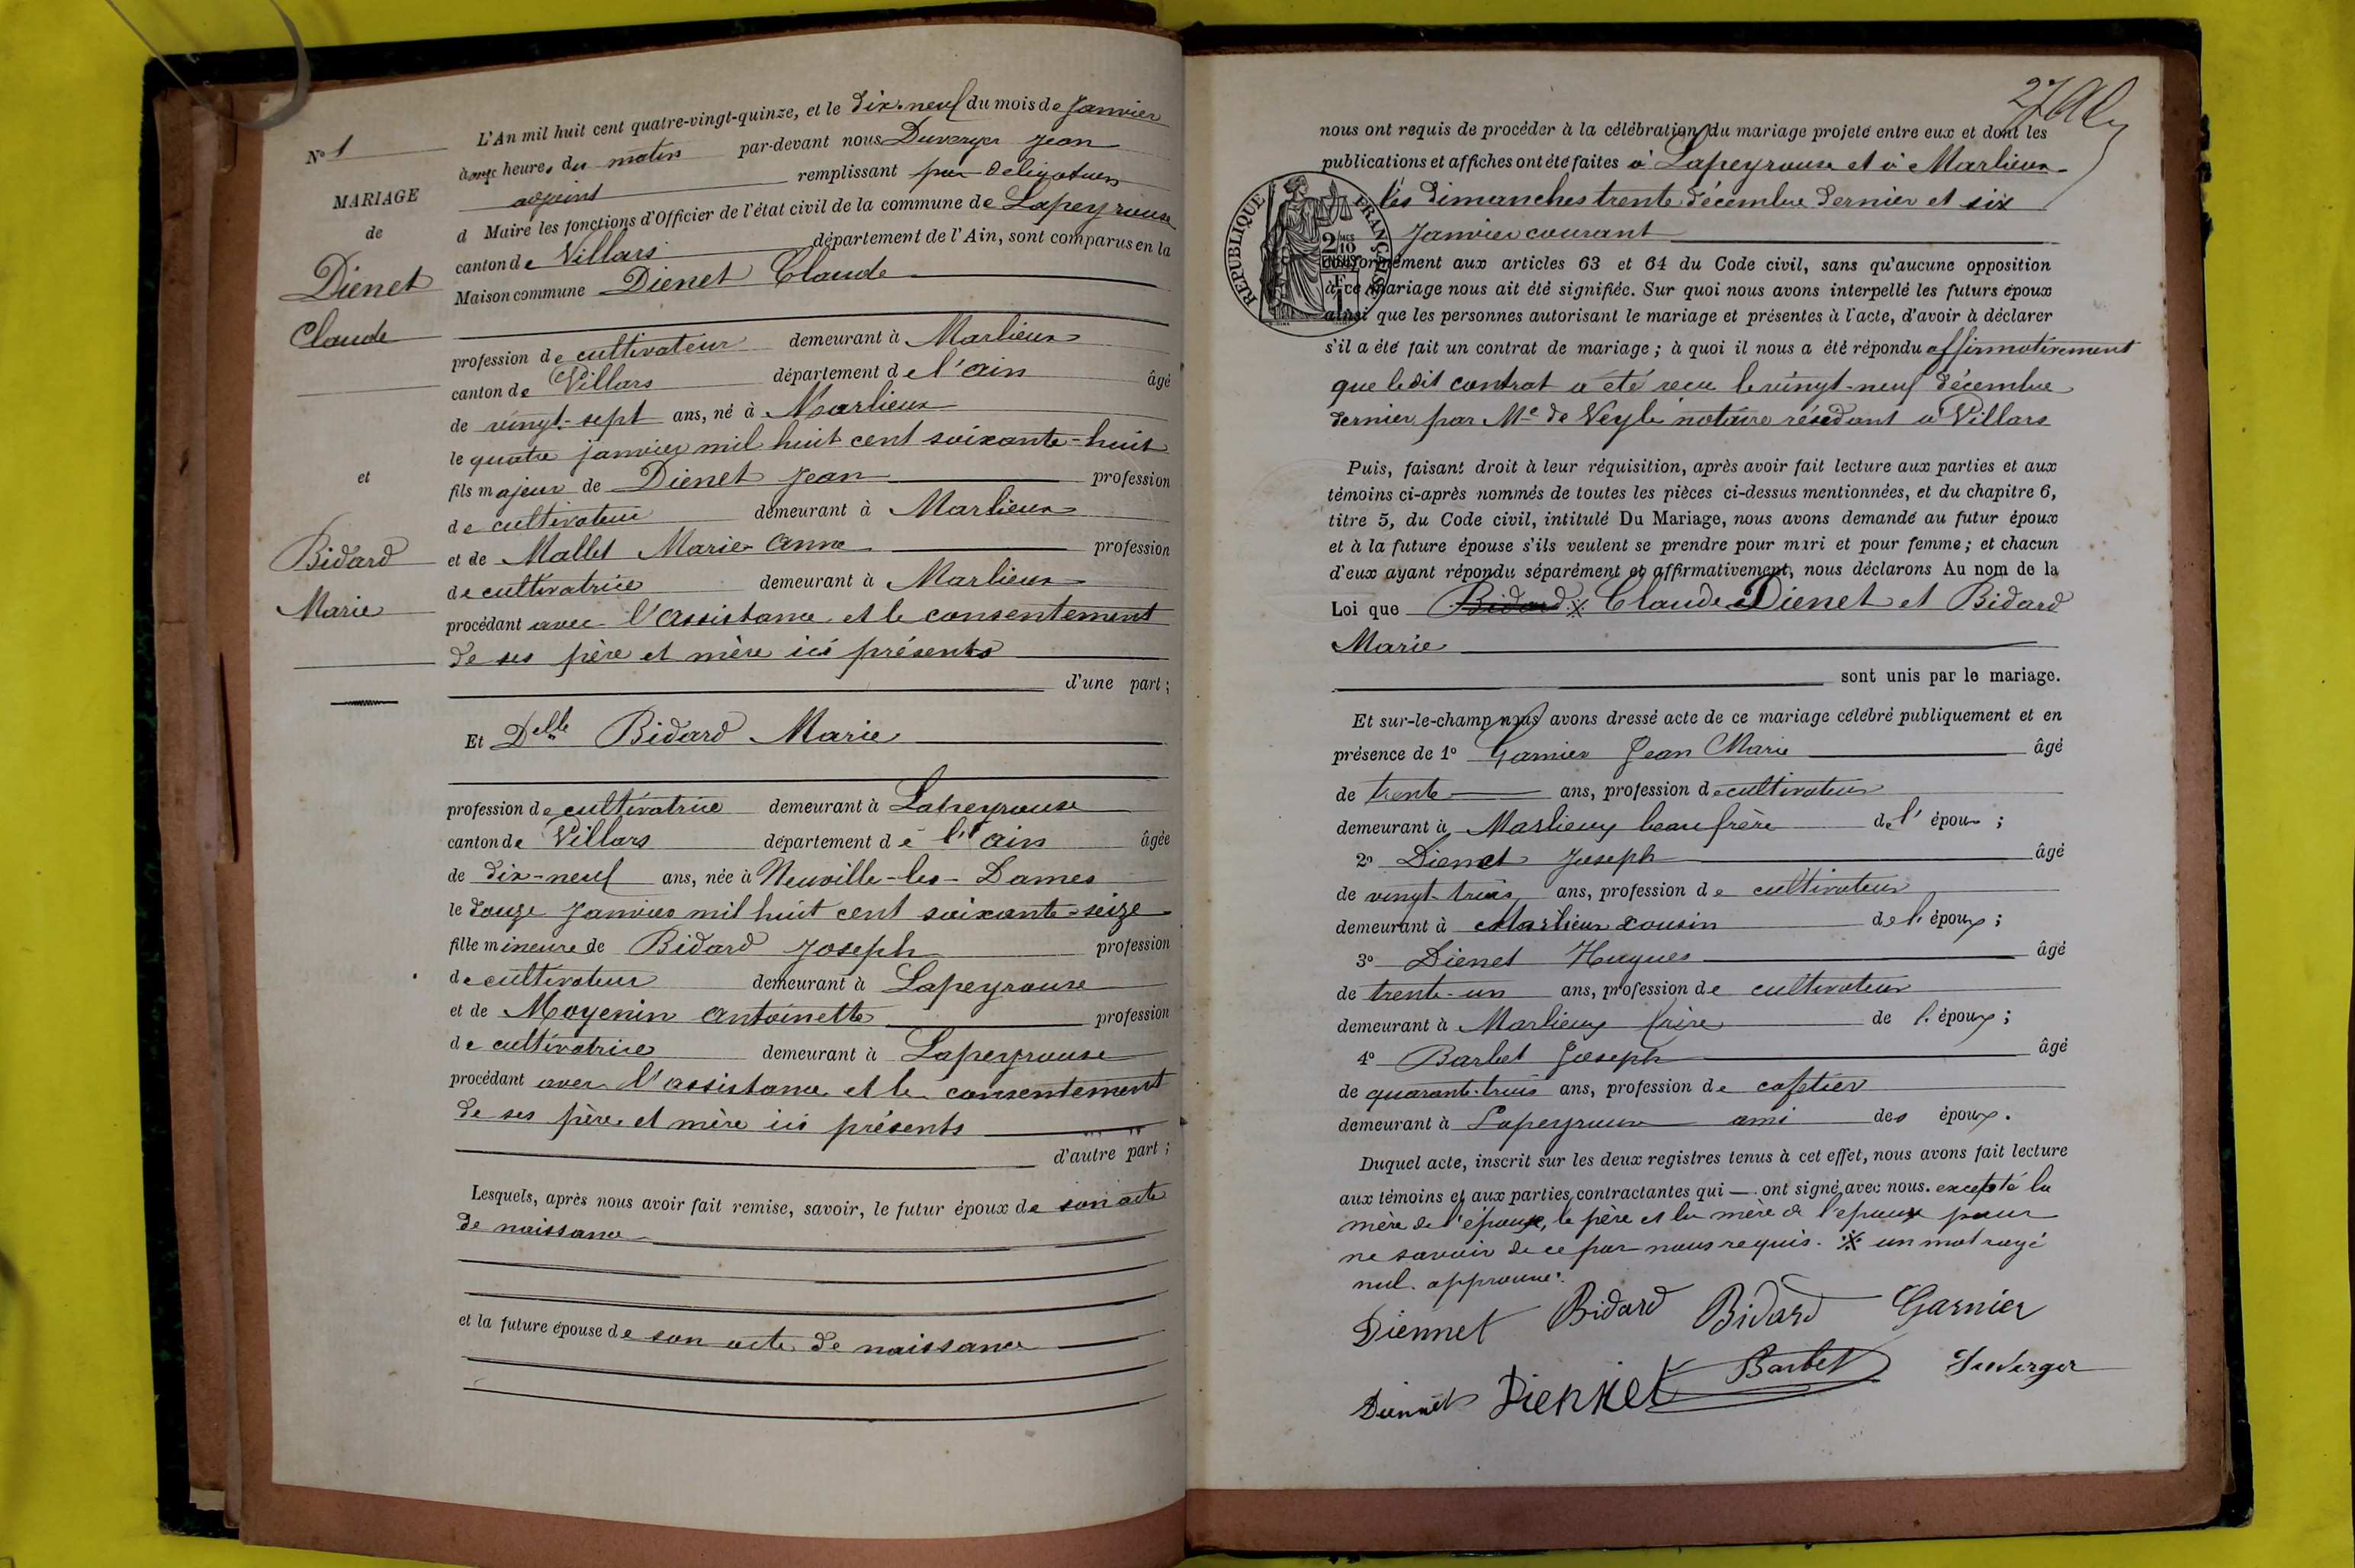 N° 1
MARIAGE
de
Dienet
Claude
et
Bidard
Marie
L'An mil huit cent quatre-vingt-quinze, et le dix-neuf du mois de Janvier
à onze heures du matin par-devant nous Duverger Jean
adjoint remplissant par délégation
d Maire les fonctions d'Officier de l'état civil de la commune de Lapeyrouse
canton de Villars département de l'Ain, sont comparus en la
Maison commune Dienet Claude
profession de cultivateur demeurant à Marlieux
canton de Villars département de l'ain âgé
de vingt-sept ans, né à Marlieux
le quatre janvier mil huit cent soixante-huit
fils majeur de Dienet Jean profession
de cultivateur demeurant à Marlieux
et de Mallet Marie Anne profession
de cultivatrice demeurant à Marlieux
procédant avec l'assistance et le consentement
de ses père et mère ici présents
d'une part;
Et Delle Bidard Marie
profession de cultivatrice demeurant à Lapeyrouse
canton de Villars département de l'ain âgée
de dix-neuf ans, née à Neuville-les-Dames
le douze Janvier mil huit cent soixante-seize
fille mineure de Bidard Joseph profession
de cultivateur demeurant à Lapeyrouse
et de Moyenin antoinette profession
de cultivatrice demeurant à Lapeyrouse
procédant avec l'assistance et le consentement
de ses père et mère ici présents
d'autre part;
Lesquels, après nous avoir fait remise, savoir, le futur époux de son acte
de naissance
et la future épouse de son acte de naissance
27
nous ont requis de procéder à la célébration du mariage projeté entre eux et dont les
publications et affiches ont été faites à Lapeyrouse et à Marlieux
les dimanches trente décembre dernier et six
Janvier courant
RÉPUBLIQUE FRANÇAISE
2/10 EN SUS
conformément aux articles 63 et 64 du Code civil, sans qu'aucune opposition
à ce mariage nous ait été signifiée. Sur quoi nous avons interpellé les futurs époux
ainsi que les personnes autorisant le mariage et présentes à l'acte, d'avoir à déclarer
s'il a été fait un contrat de mariage; à quoi il nous a été répondu affirmativement
que ledit contrat a été reçu le vingt-neuf décembre
dernier par Me de Veyle notaire résidant à Villars
Puis, faisant droit à leur réquisition, après avoir fait lecture aux parties et aux
témoins ci-après nommés de toutes les pièces ci-dessus mentionnées, et du chapitre 6,
titre 5, du Code civil, intitulé Du Mariage, nous avons demandé au futur époux
et à la future épouse s'ils veulent se prendre pour mari et pour femme; et chacun
d'eux ayant répondu séparément et affirmativement, nous déclarons Au nom de la
Loi que Bidard ※ Claude Dienet et Bidard
Marie
sont unis par le mariage.
Et sur-le-champ nous avons dressé acte de ce mariage célébré publiquement et en
présence de 1° Garnier Jean Marie âgé
de trente ans, profession de cultivateur
demeurant à Marlieux beau frère de l'époux;
2° Dienet Joseph âgé
de vingt-trois ans, profession de cultivateur
demeurant à Marlieux cousin de l'époux;
3° Dienet Hugues âgé
de trente-un ans, profession de cultivateur
demeurant à Marlieux frère de l'époux;
4° Barbet Joseph âgé
de quarante-trois ans, profession de cafetier
demeurant à Lapeyrouse ami des époux.
Duquel acte, inscrit sur les deux registres tenus à cet effet, nous avons fait lecture
aux témoins et aux parties contractantes qui — ont signé avec nous. excepté la
mère de l'épouse, le père et la mère de l'époux pour
ne savoir de ce par nous requis. ※ un mot rayé
nul. approuvé.
Diennet Bidard Bidard Garnier
Diennet Diennet Barbet Duverger